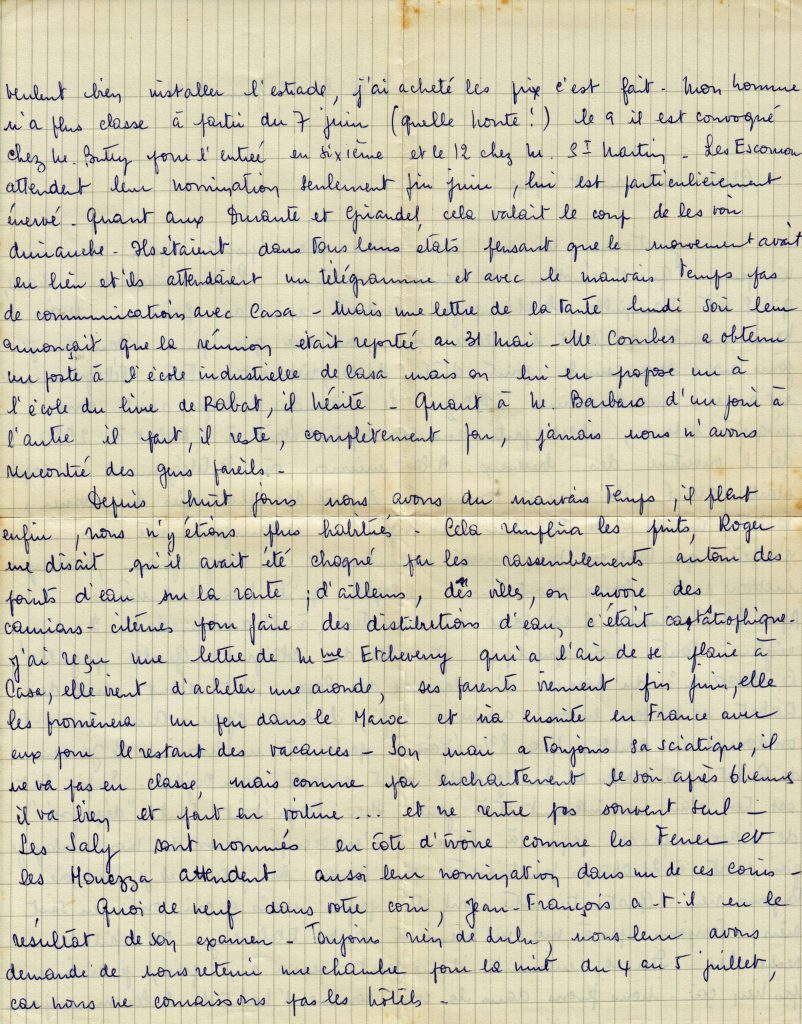 veulent bien installer l'estrade, j'ai acheté les prix c'est fait - Mon homme
n'a plus classe à partir du 7 juin (quelle honte!) le 9 il est convoqué
chez M. pour l'entrée en sixième et le 12 chez M. St Martin - Les Escomon
attendent leur nomination seulement fin juin, lui est particulièrement
énervé - Quant aux Durante et Girandel, cela valait le coup de les voir
dimanche - Ils étaient dans tous leurs états pensant que le mouvement avait
eu lieu et ils attendaient un télégramme et avec le mauvais temps pas
de communications avec Casa - Mais une lettre de la tante lundi soir leur
annonçait que la réunion était reportée au 31 mai - Me Combes a obtenu
un poste à l'école industrielle de Casa mais on lui en propose un à
l'école du livre de Rabat, il hésite - Quant à M. Barbaro d'un jour à
l'autre il part, il reste, complètement fou, jamais nous n'avons
rencontré des gens pareils -
Depuis huit jours nous avons du mauvais temps, il pleut
enfin, nous n'y étions plus habitués - Cela remplira les puits, Roger
me disait qu'il avait été choqué par les rassemblements autour des
points d'eau sur la route ; d'ailleurs, des villes, on envoie des
camions-citernes pour faire des distributions d'eau, c'était catastrophique -
J'ai reçu une lettre de Mme Etcheverry qui a l'air de se plaire à
Casa, elle vient d'acheter une aronde, ses parents viennent fin juin, elle
les promènera un peu dans le Maroc et ira ensuite en France avec
eux pour le restant des vacances - Son mari a toujours sa sciatique, il
ne va pas en classe, mais comme par enchantement le soir après 6 heures
il va bien et part en voiture... et ne rentre pas souvent seul -
Les Saly sont nommés en côte d'ivoire comme les Ferrer et
les Mouezza attendent aussi leur nomination dans un de ces coins -
Quoi de neuf dans votre coin, Jean-François a-t-il eu le
résultat de son examen - Toujours rien de Lulu, nous leur avons
demandé de nous retenir une chambre pour la nuit du 4 au 5 juillet,
car nous ne connaissons pas les hôtels -